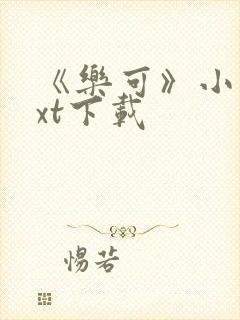 《樂可》小
xt下載
惕若